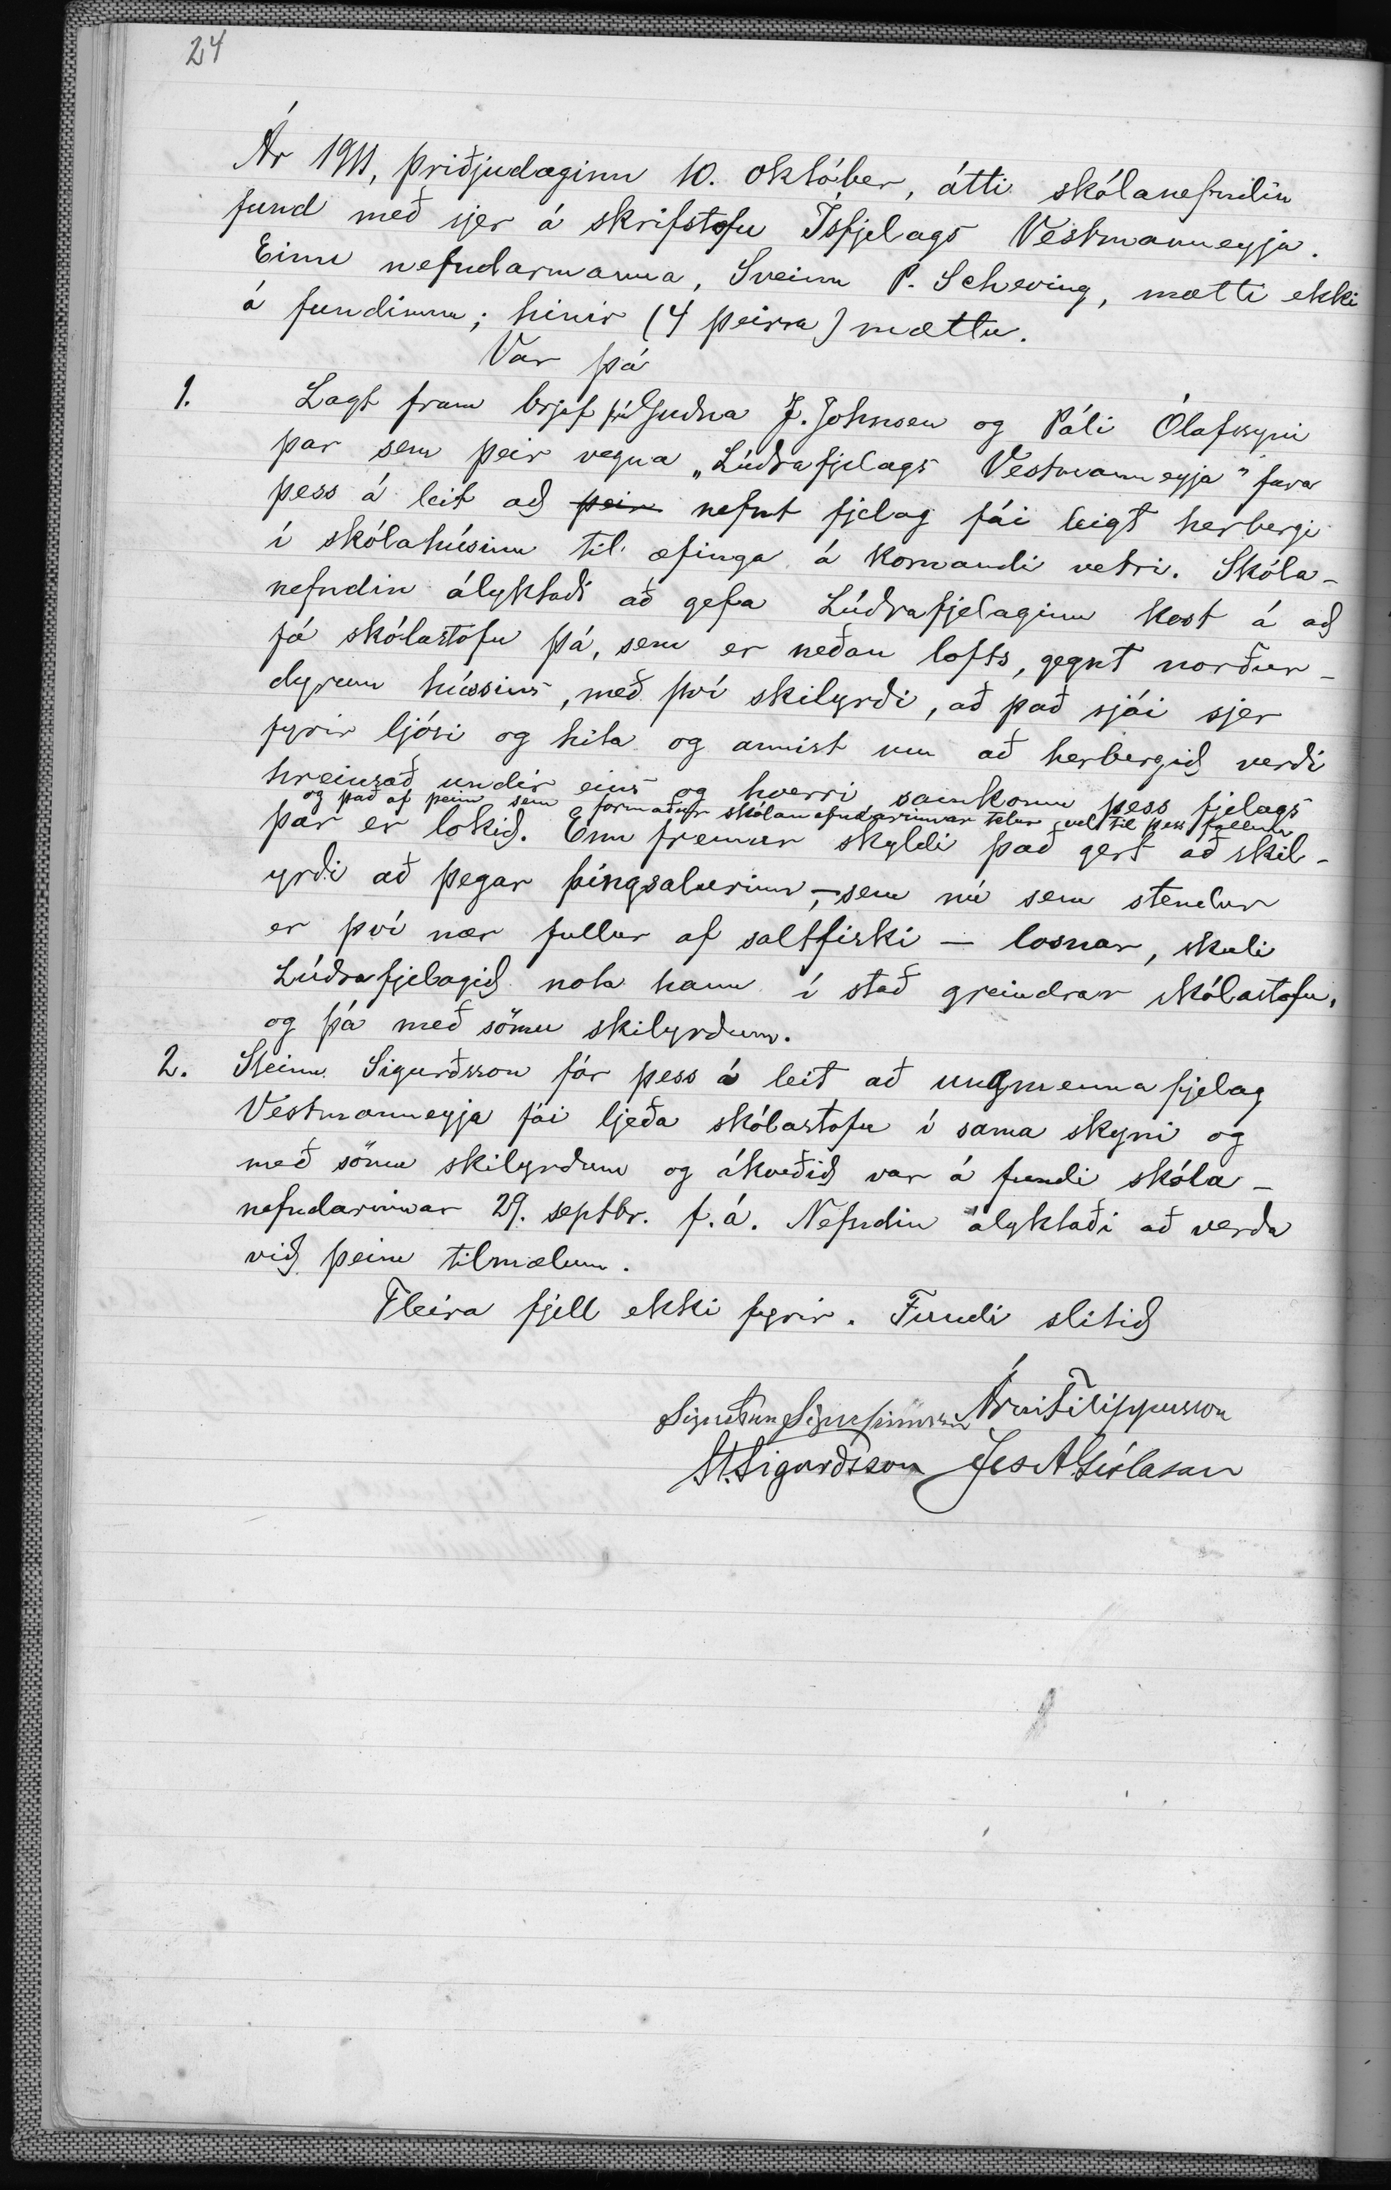 24
Ár 1911, þriðjudaginn 10. október, átti skólanefndin
fund með sjer á skrifstofu Ísfjelags Vestmannaeyja.
Einn nefndarmanna, Sveinn P. Scheving, mætti ekki
á fundinum; hinir (4 þeirra) mættu.
Var þá
1. Lagt fram brjef frá Guðna J. Johnsen og Páli Ólafssyni
þar sem þeir vegna „Lúðrafjelags Vestmannaeyja" fara
þess á leit að þeir nefnt fjelag fái leigt herbergi
í skólahúsinu til æfinga á komandi vetri. Skóla-
nefndin ályktaði að gefa Lúðrafjelaginu kost á að
fá skólastofu þá, sem er neðan lofts, gegnt norður-
dyrum hússins, með því skilyrði, að það sjái sjer
fyrir ljósi og hita og annist um að herbergið verði
hreinsað undir eins og hverri samkomu þess fjelags
og það af þeim sem formaður skólanefndarinnar telur vel til þess fallinn
þar er lokið. Enn fremur skyldi það gert að skil-
yrði að þegar þingsalurinn, - sem nú sem stendur
er því nær fullur af saltfiski - losnar, skuli
Lúðrafjelagið nota hann í stað greindrar skólastofu,
og þá með sömu skilyrðum.
2. Steinn Sigurðsson fór þess á leit að ungmennafjelag
Vestmannaeyja fái ljeða skólastofu í sama skyni og
með sömu skilyrðum og ákveðið var á fundi skóla-
nefndarinnar 29. septbr. f.á. Nefndin ályktaði að verða
við þeim tilmælum.
Fleira fjell ekki fyrir. Fundi slitið
Sigurbjörn Sigurfinnsson Árni Filippusson
St. Sigurðsson Jes A Gíslason